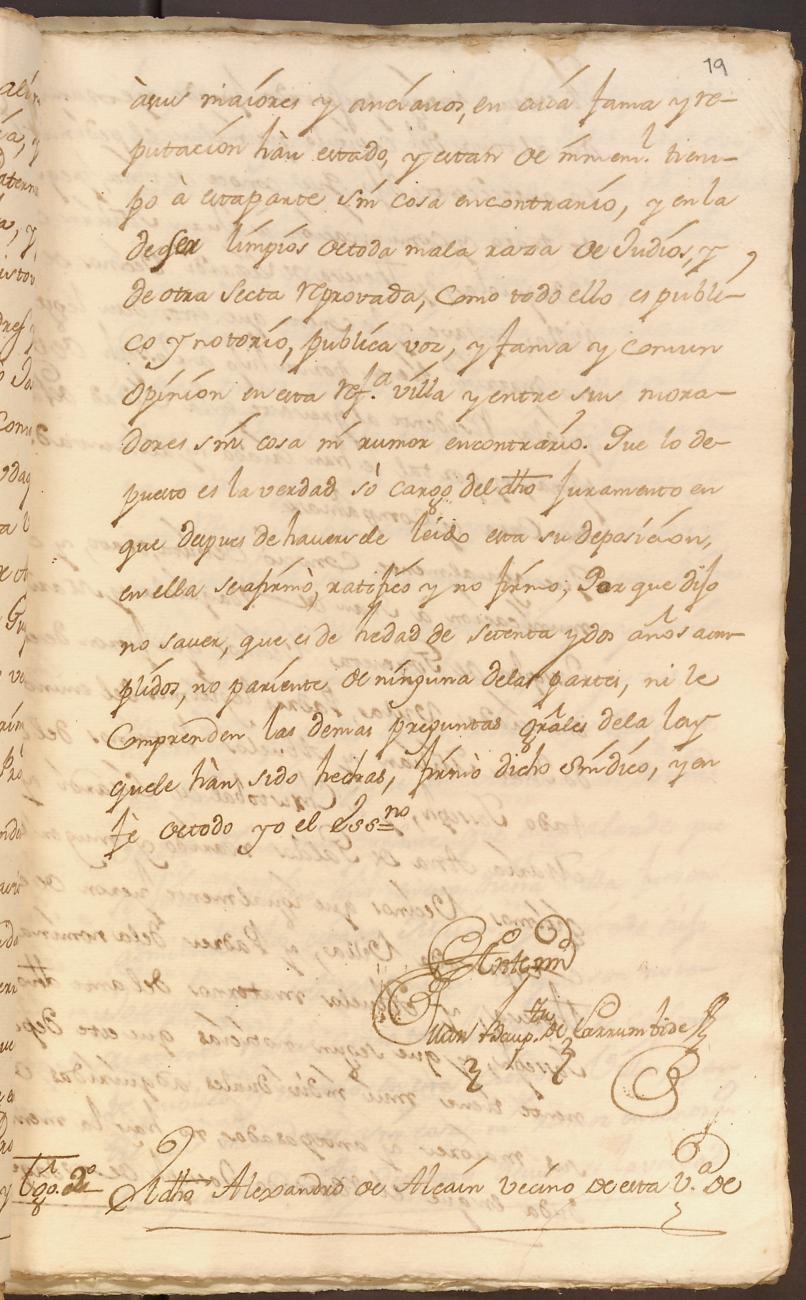 19
à sus maiores y ancianos, en cuia fama y re-
putación hàn estado, y estan de ínmeml. tiem-
po à esta parte sín cosa encontrarío, y en la
de ser límpíos de toda mala raza de Judíos, y
de otra secta reprovada, como todo ello es publí-
co y notorío, publíca voz, y fama y comun
opíníon en esta refda. vílla y entre sus mora-
dores síni cosa ní rumor encontrarío. Que lo de-
puesto es la verdad sò cargo del dho Juramento en
que despues de haversele leído esta su deposícíon,
en ella se afirmò, ratificò y no firmo, Por que dijo
no saver, que es de hedad de setenta y dos años cum-
plidos, no paríente de nínguna delas partes, ni le
comprenden las demas preguntas grâles dela ley
quele hàn sido hechas, firmò dicho Síndíco, y en
fè de todo yo el Essno
Ante mi
Juan Bauptta de Larrumbide
tgo. 2o
El dho Alexandro de Alcaín vecino de esta Va. de